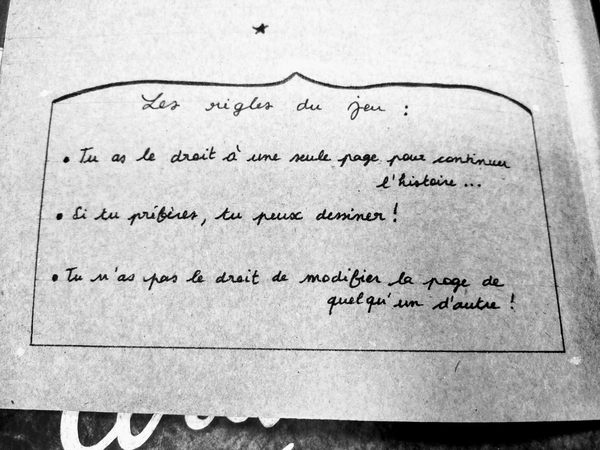 Les règles du jeu :
• Tu as le droit à une seule page pour continuer
l'histoire...
• Si tu préfères, tu peux dessiner !
• Tu n'as pas le droit de modifier la page de
quelqu'un d'autre !